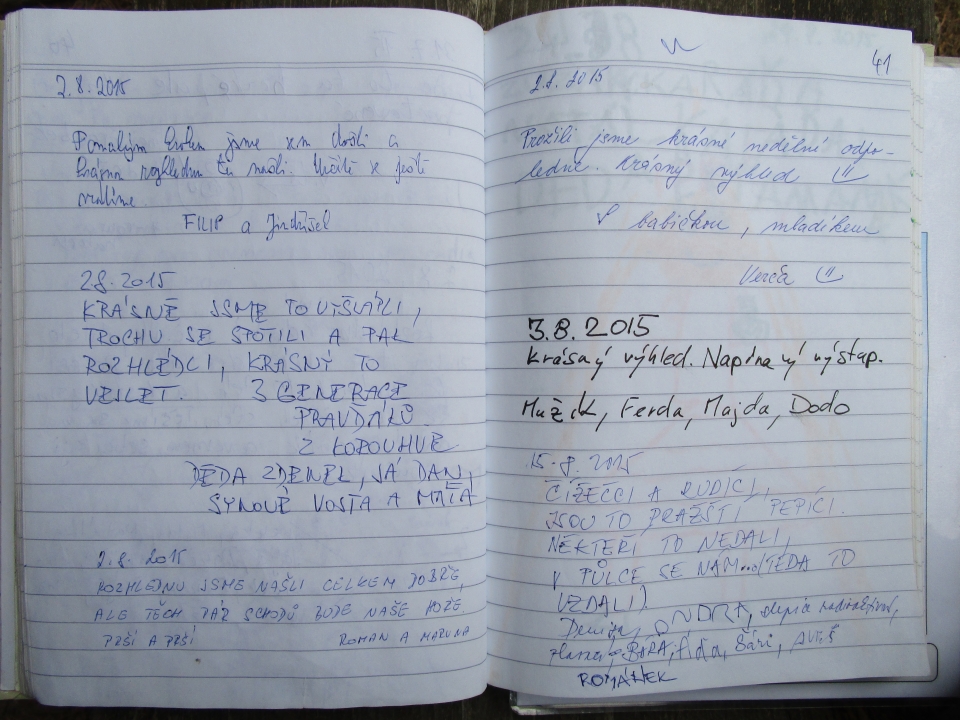 2.8.2015
Pomalým krokem jsme sem došli a
krásnou rozhlednu tu našli. Určitě se ještě
vrátíme.
FILIP a
28.2015
KRÁSNĚ JSME TO VYŠLÁPLI,
TROCHU SE SPOTILI A PAK
ROZHLÉDLI, KRÁSNÝ TO
VEJLET. 3 GENERACE
PRAVDÍKŮ
Z KOROUHVE
DĚDA ZDENEK, JÁ DAN,
SYNOVÉ VOSTA A MATA
2.8.2015
ROZHLEDNU JSME NAŠLI CELKEM DOBŘE,
ALE TĚCH PÁR SCHODŮ BUDE NAŠE
PRŠÍ A PRŠÍ ROMAN A
41
2.8.2015
Prožili jsme krásné nedělní odpo-
ledne. Krásný výhled
S babičkou, mladíkem
Verča
3.8.2015
Krásný výhled. Napínavý výstup.
Mužík, Ferda, Majda, Dodo
15.8.2015
ČÍŽEČCI A RUDÍCI,
JSOU TO PRAŽSTÍ PEPÍCI.
NĚKTEŘÍ TO NEDALI,
V PŮLCE SE NÁM...(TEDA TO
VZDALI)
ONDRA,
BÁRA, Šári,
ROMÁNEK